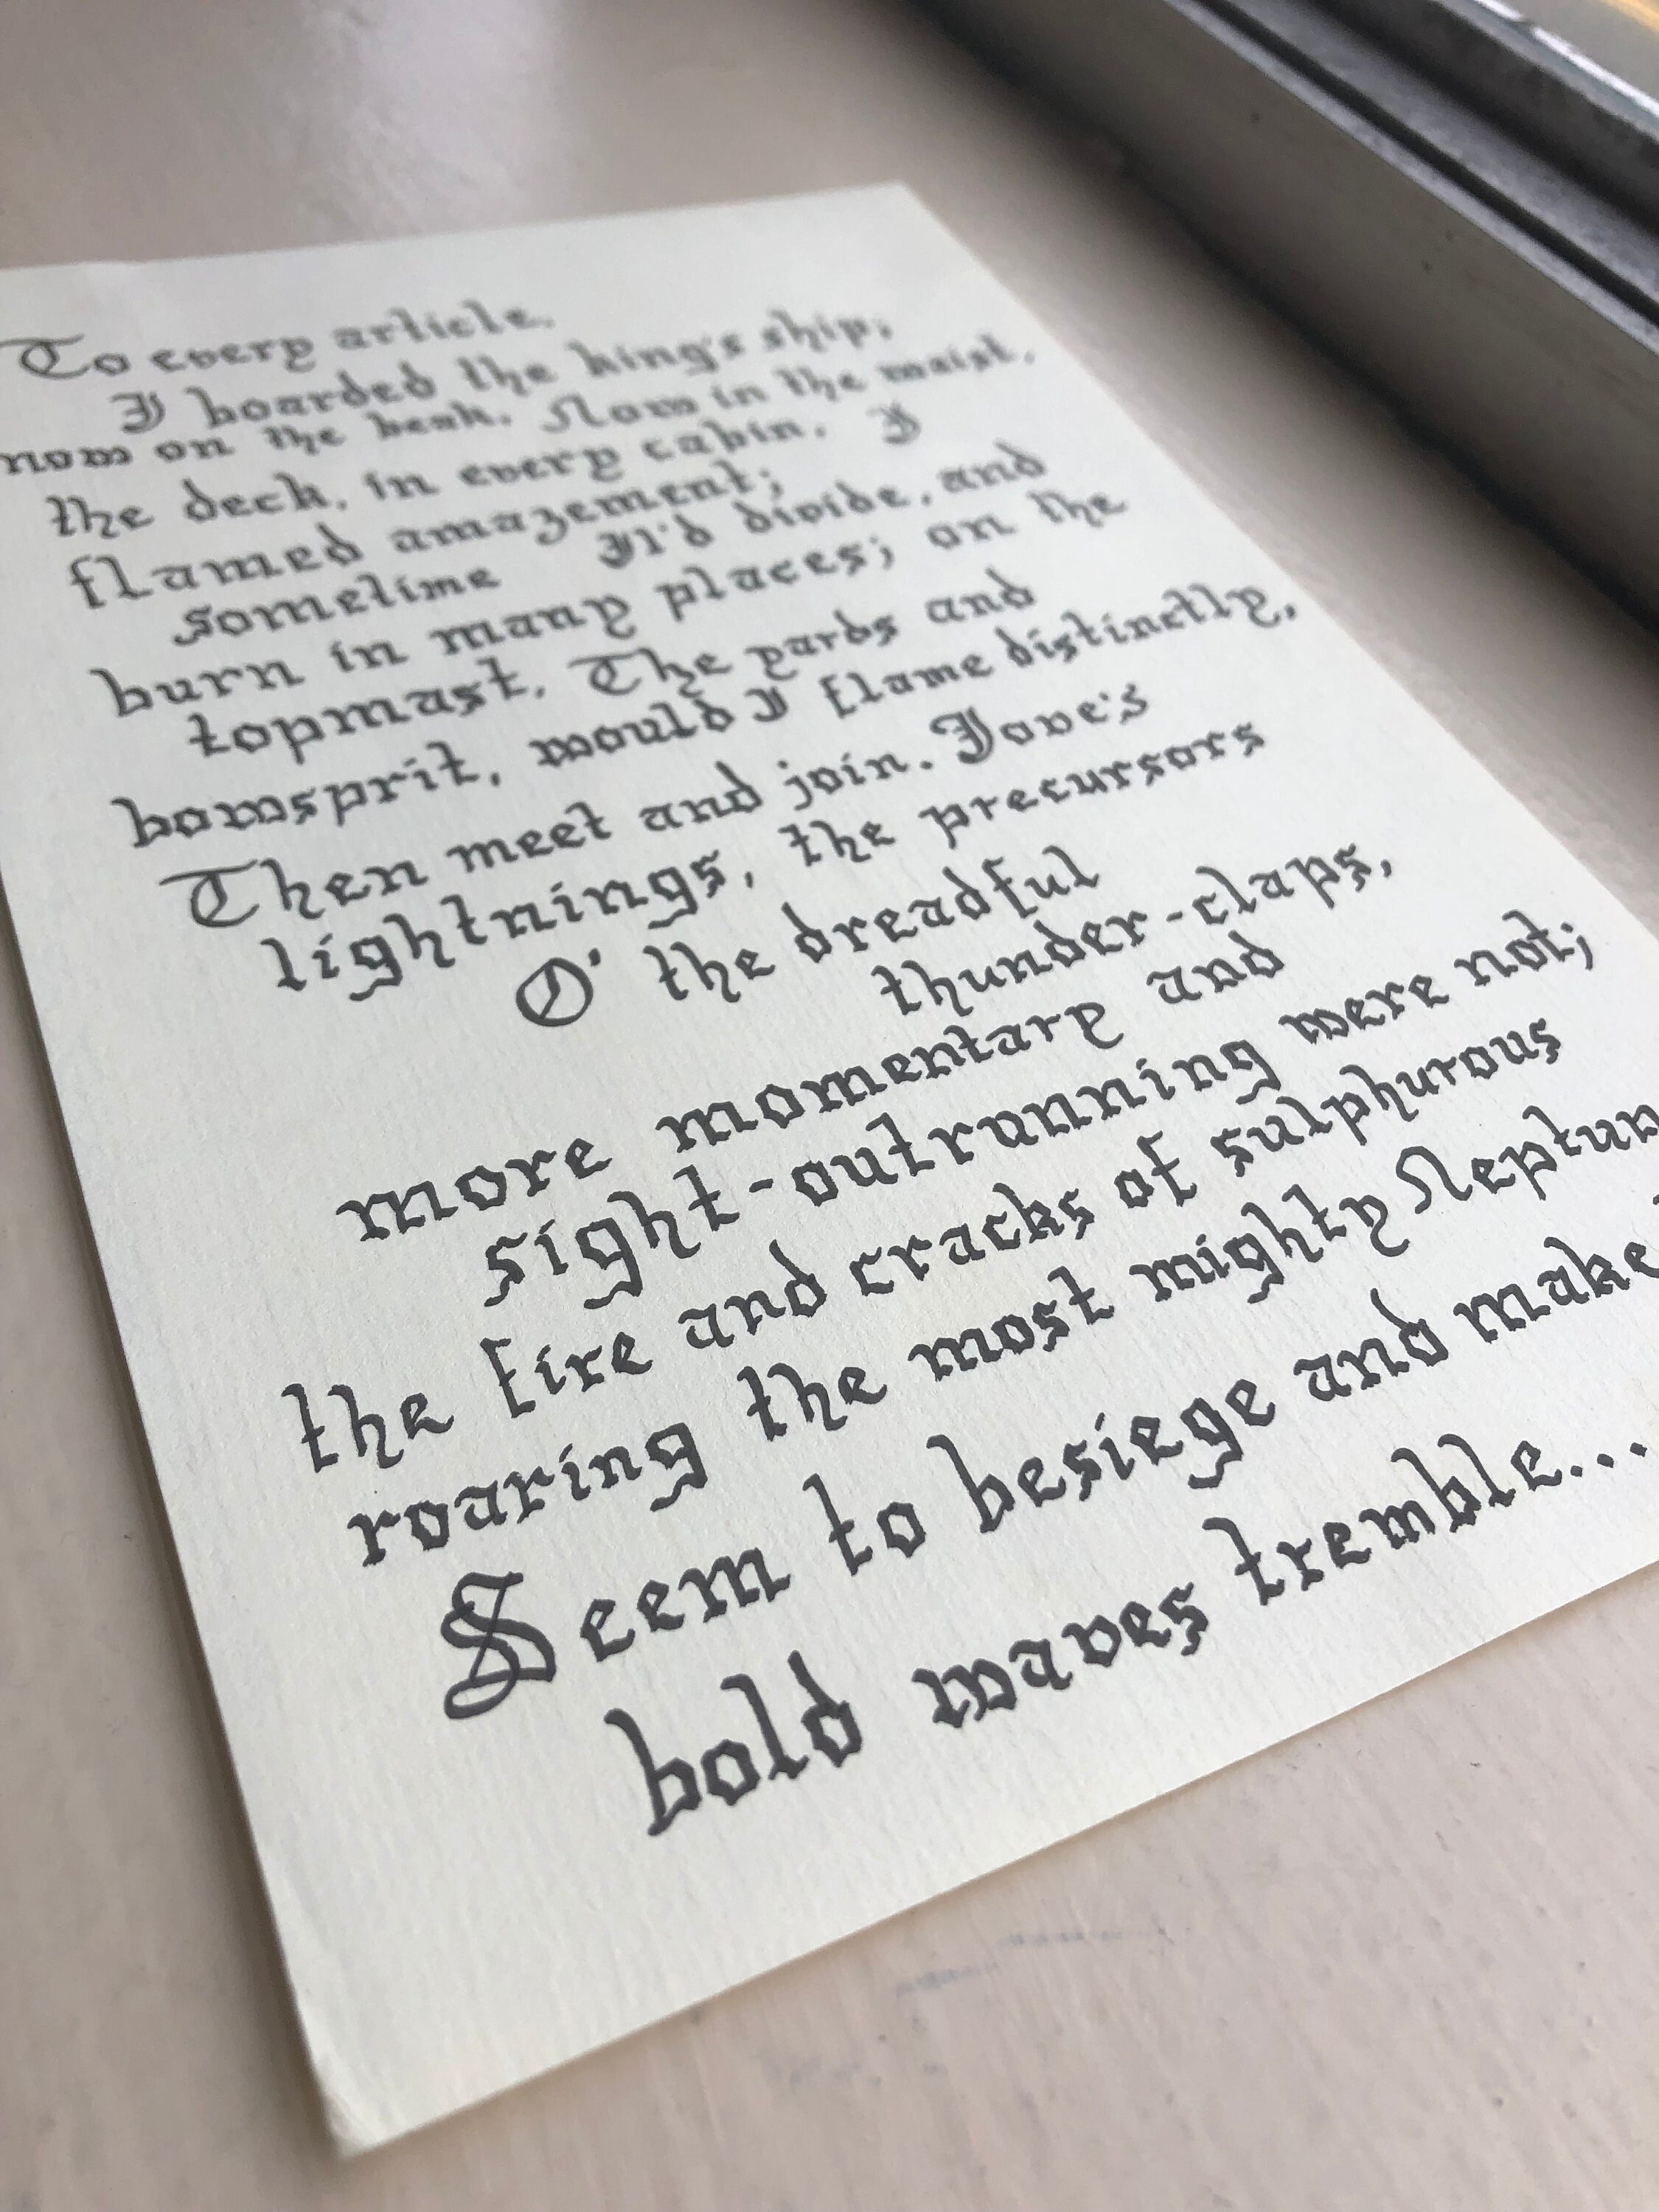 To every article.
I boarded the king's ship;
now on the beak. Now in the waist,
the deck, in every cabin, I
flamed amazement;
sometime I'd divide, and
burn in many places; on the
topmast, The yards and
bowsprit, would I flame distinctly,
Then meet and join. Jove's
lightnings, the precursors
O' the dreadful
thunder-claps,
more momentary and
sight-outrunning were not;
the fire and cracks of sulphurous
roaring the most mighty Neptun
Seem to besiege and make
bold waves tremble...